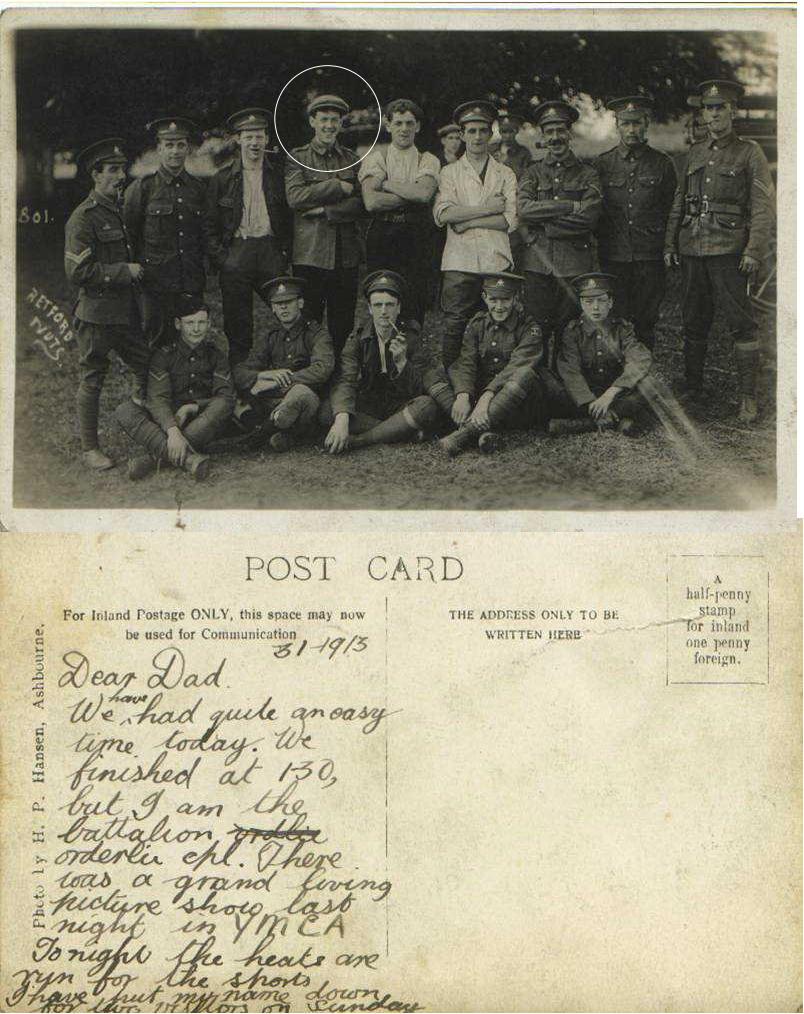 801.
RETFORD
TYUTS
POST CARD
For Inland Postage ONLY, this space may now
be used for Communication
THE ADDRESS ONLY TO BE
WRITTEN HERE
A
half-penny
stamp
for inland
one penny
foreign.
Photo by H. P. Hansen, Ashbourne.
31-1913
Dear Dad.
We have had quite an easy
time today. We
finished at 1-30,
but I am the
battalion
orderlie cpl. There
was a grand living
picture show last
night in YMCA
Tonight the heats are
run for the sports
I have put my name down
for two visitors on Sunday